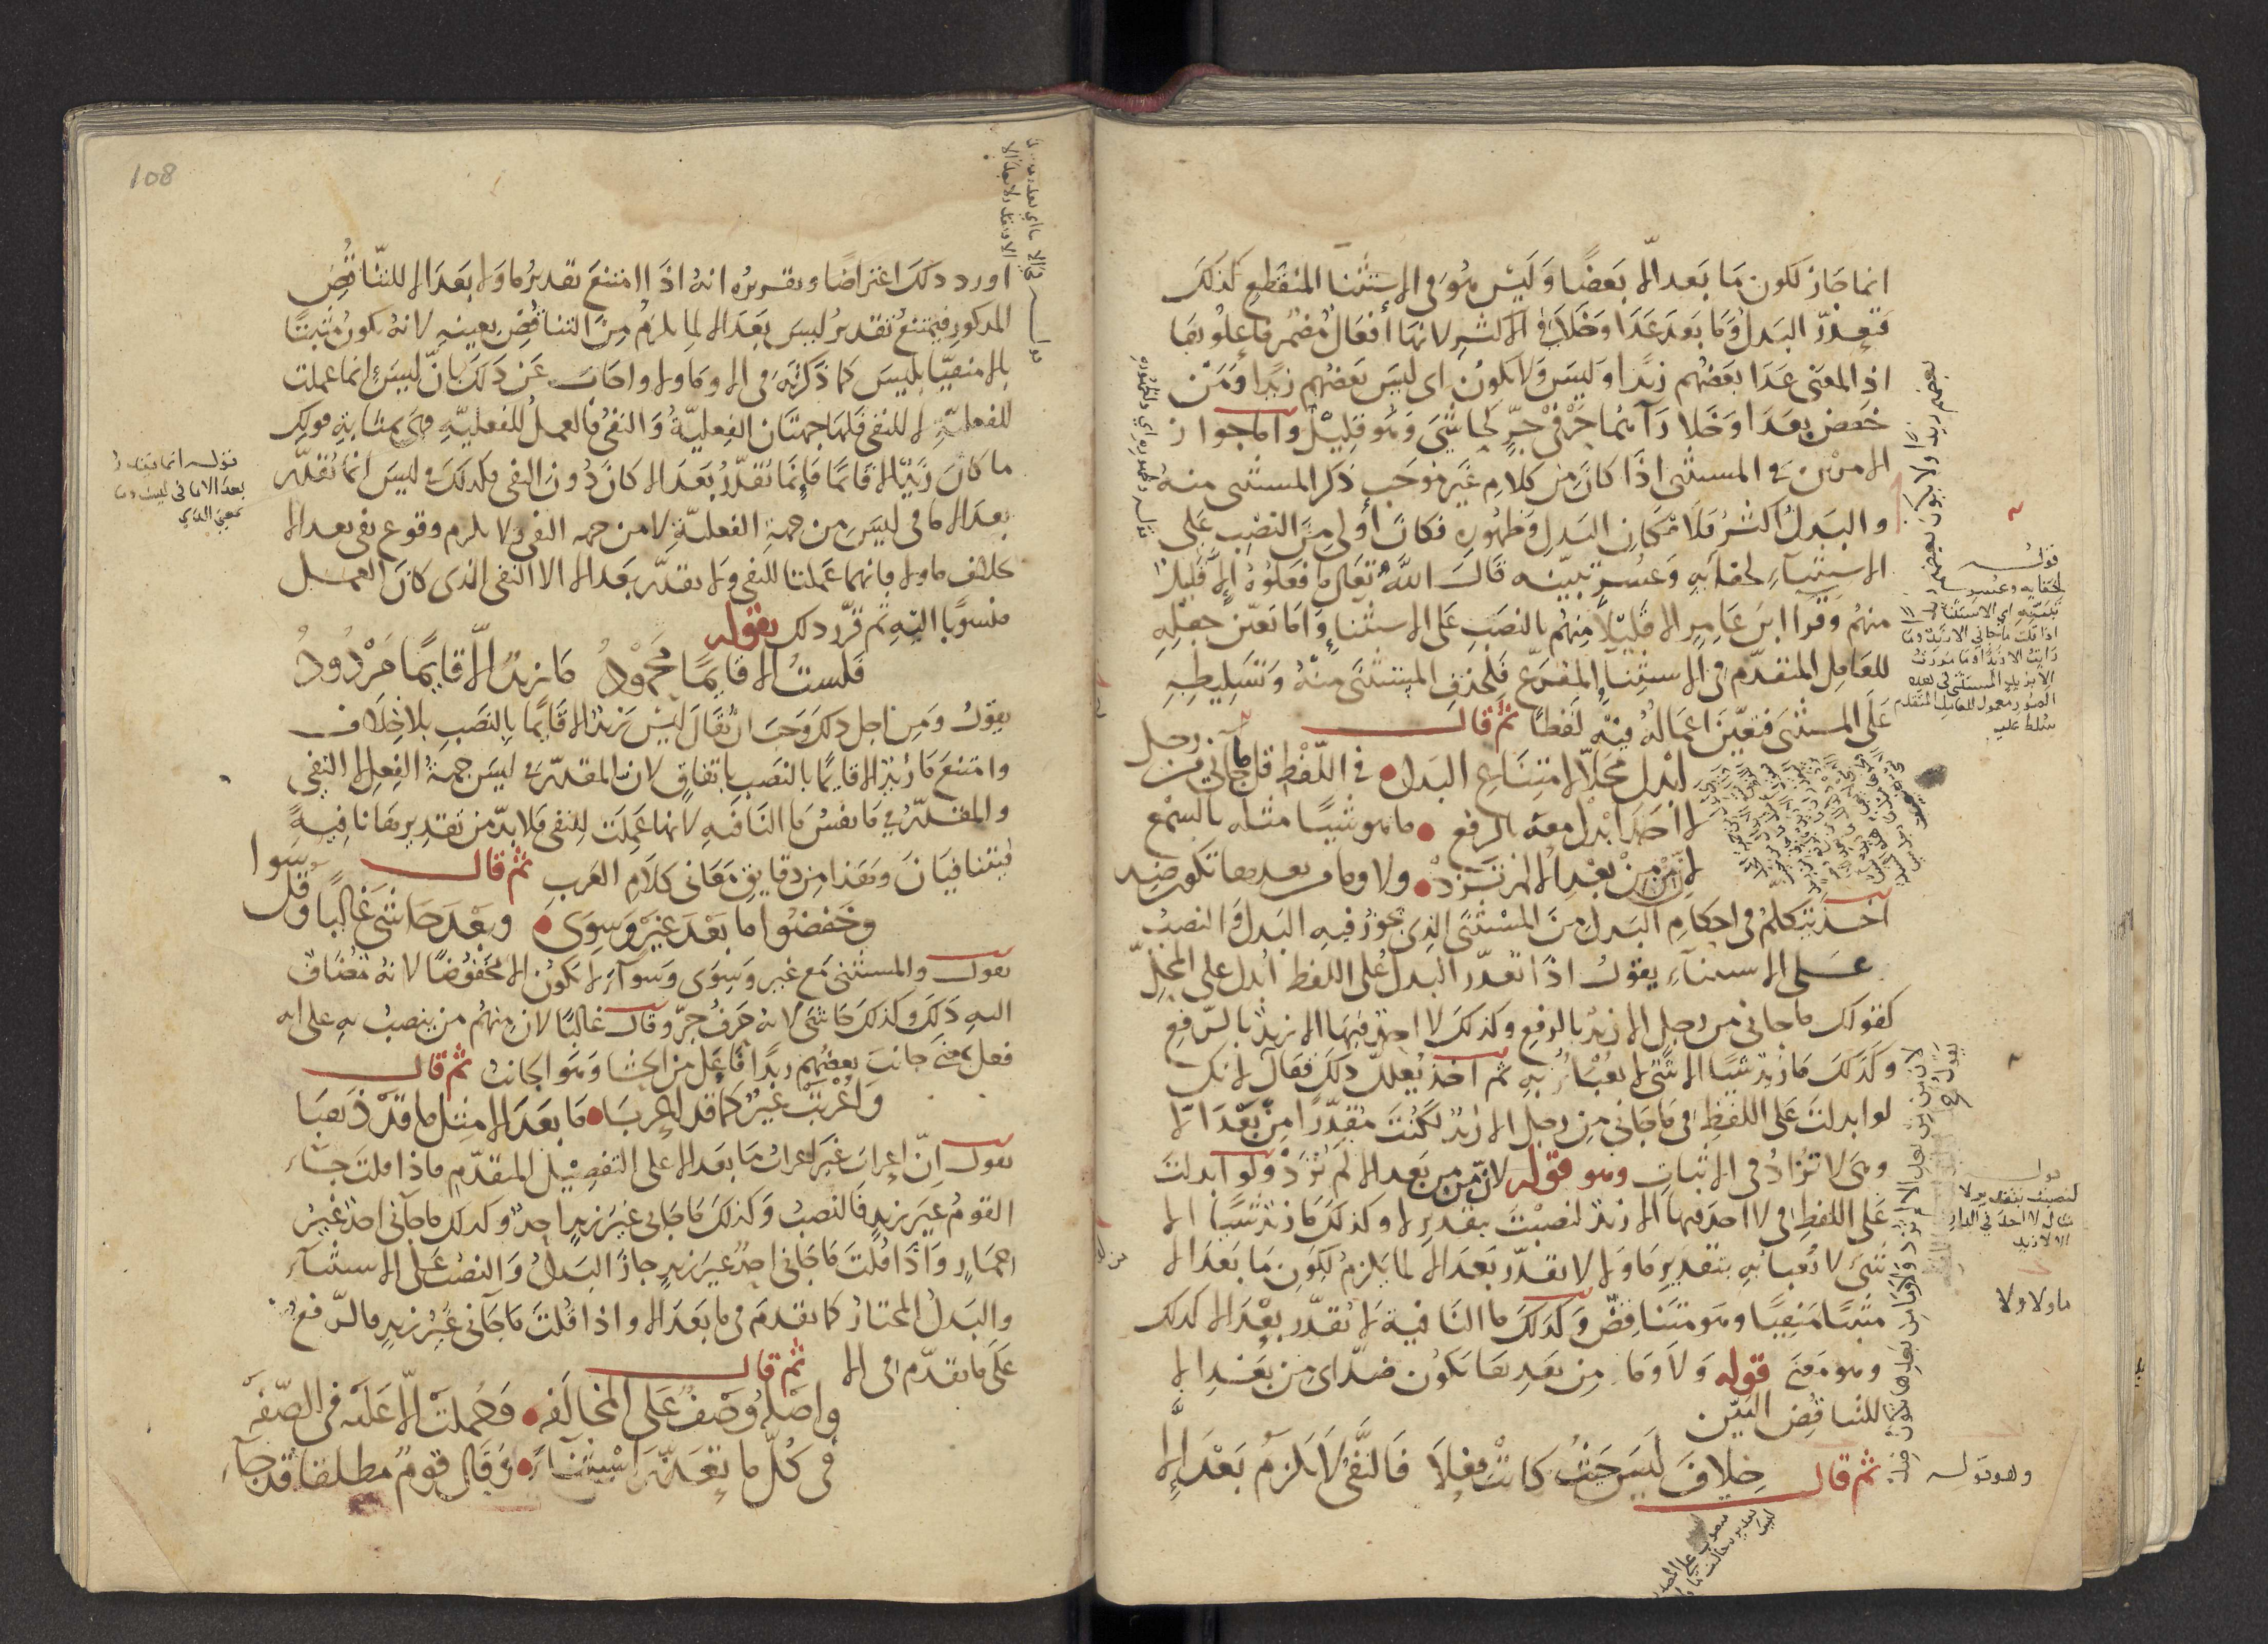 انما جاز لكون ما بعد الا بعضا وليس هو في الاستثنا المنقطع كذلك
فتعذر البدل وما بعد عدا وخلا في الاكثر لانها افعال مضمر فاعلوها
اذ المعنى عدا بعضهم زيدا وليس ولا يكون اي ليس بعضهم زيدا ومن
خفض بعدا وخلا رآهما حرفي جر كحاشى وهو قليل واما جواز
الامرين في المستثنى اذا كان من كلام غير موجب ذكر المستثنى منه
والبدل اكثر فلامكان البدل وظهوره فكان أولى من النصب على
الاستثناء لخفايه وعسر تبيينه قال الله تعالى ما فعلوه الا قليل
منهم وقرا ابن عامر الا قليلا منهم بالنصب على الاستثناء واما تعين جعله
للعامل المتقدم في الاستثناء المفرغ فلحذف المستثنى منه وتسليطه
على المستثنى فتعين اعماله فيه لفظا ثم قال
ابدل محلا لامتناع البدل في اللفظ قل ما جآني من رجل
لا احد ابدل معه بالرفع ما هو شيا مثله بالسمع
لان من بعد الا لم تزد ولا وما من بعدها تكون ضد
اخذ يتكلم في احكام البدل من المستثنى الذي يجوز فيه البدل والنصب
على الاستثناء يقول اذا تعذر البدل على اللفظ ابدل على المحل
كقولك ما جاني من رجل الا زيد بالرفع وكذلك لا احد فيها الا زيد بالرفع
وكذلك ما زيد شيا الا شي لا يعباء به ثم اخذ يعلل ذلك فقال لانك
لو ابدلت على اللفظ في ما جاني من رجل الا زيد لكنت مقدرا من بعد الا
وهي لا تزاد في الاثبات وهو قوله لان من بعد الا لم تزد ولو ابدلت
على اللفظ في لا احد فيها الا زيد لنصبت بتقدير لا وكذلك ما زيد شيا الا
شي لا يعبا به بتقدير ما ولا لا تقدر بعد الا لما يلزم لكون ما بعد الا
مثبتا منفيا وهو متناقض وكذلك ما النافية لا تقدر بعد الا كذلك
وهو معنى قوله ولا وما من بعدها تكون ضد اي من بعد الا
للتناقض البين
ثم قال خلاف ليس حيث كانت فعلا فالنفي لا يلزم بعد الا
قوله
لخفايه وعسر
تبيينه اي الاستثنا
اذا قلت ما جاني الا زيد وما
رايت الا زيدا وما مررت
الا بزيد المستثنى في هذه
الصور معمول للعامل المتقدم
سلط عليه
قوله
لنصبت بتقدير لا
مثاله لا احد في الدار
الا زيد
ما ولا ولا
وهو قوله
108
اورد ذلك اعتراضا وتقريره انه اذا امتنع تقدير ما ولا بعد الا للتناقض
المذكور فيمتنع تقدير ليس بعد الا لما يلزم من التناقض بعينه لانه يكون مثبتا
بالا منفيا بليس كما ذكرته في الا وما ولا واجاب عن ذلك بان ليس انما عملت
للفعلية لا للنفي فلها جهتان الفعلية والنفي فالعمل للفعلية وهي بمثابة قولك
ما كان زيد الا قائما فانما تقدر بعد الا كان دون النفي فكذلك في ليس انما تقدر
بعد الا ما في ليس من جهة الفعلية لا من جهة النفي ولا يلزم وقوع نفي بعد الا
بخلاف ما ولا فانهما عملتا للنفي ولا تقدر بعد الا الا النفي الذي كان العمل
منسوبا اليه ثم قرر ذلك بقوله
فلست الا قايما محمود ما زيد الا قايما مردود
يقول ومن اجل ذلك وجب ان يقال ليس زيد الا قايما بالنصب بلا خلاف
وامتنع ما زيد الا قايما بالنصب باتفاق لان المقدر في ليس جهة الفعل لا النفي
والمقدر في ما نفس ما النافيه لانها عملت للنفي فلا بد من تقديرها نافية
فيتنافيان وهذا من دقايق معاني كلام العرب ثم قال
وخفضوا ما بعد غير وسوى وبعد حاشى غالبا وقل سوا
يقول والمستثنى مع غير وسوى وسوآء لا يكون الا مخفوضا لانه مضاف
اليه ذلك وكذلك حاشى لانه حرف جر وقال غالبا لان منهم من ينصب به على انه
فعل بمعنى جانب بعضهم زيدا فاعل من الحشا وهو الجانب ثم قال
واعربت غير كما قد اعربا ما بعد الا مثل ما قد ذهبا
يقول ان إعراب غير اعراب ما بعد الا على التفصيل المتقدم فاذا قلت جاء
القوم غير زيد فالنصب وكذلك ما جاني غير زيد احد وكذلك ما جآني احد غير
حمار واذا قلت ما جاني احد غير زيد جاز البدل والنصب على الاستثنآء
والبدل المختار كما تقدم في ما بعد الا واذا قلت ما جآني غير زيد فالرفع
على ما تقدم في الا ثم قال
واصله وصف على المخالفه وحملت الا عليه في الصفه
في كل ما تعذر استثناء وقال قوم مطلقا قد جآء
قوله انما تقدر
بعد الا ما في ليس وما
بمعنى الذي